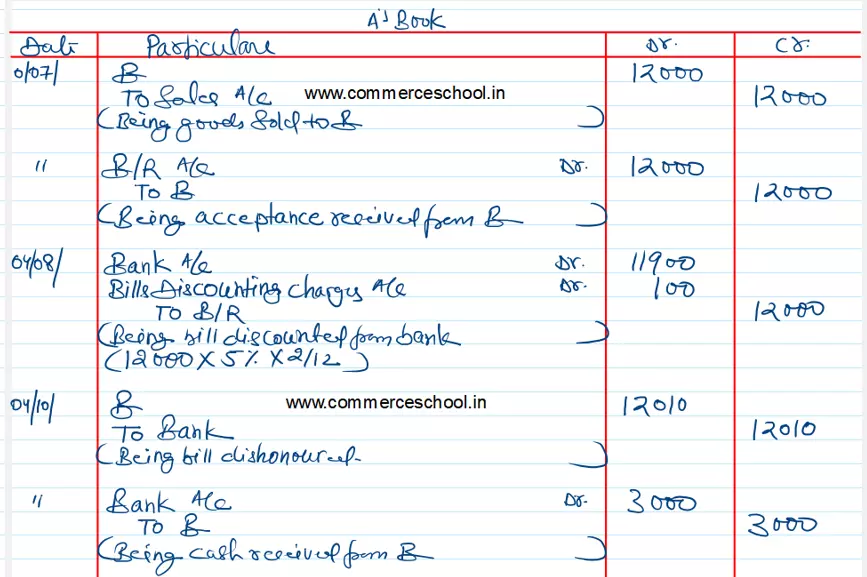 A's Book
Date Particulars Dr. Cr.
0/07/ B 12000
To Sales A/c www.commerceschool.in 12000
(Being goods sold to B)
" B/R A/c Dr. 12000
To B 12000
(Being acceptance received from B)
04/08/ Bank A/c Dr. 11900
Bills Discounting Charges A/c Dr. 100
To B/R 12000
(Being bill discounted from bank)
(12000 X 5% X 2/12)
04/10/ B www.commerceschool.in 12010
To Bank 12010
(Being bill dishonoured)
" Bank A/c Dr. 3000
To B 3000
(Being cash received from B)